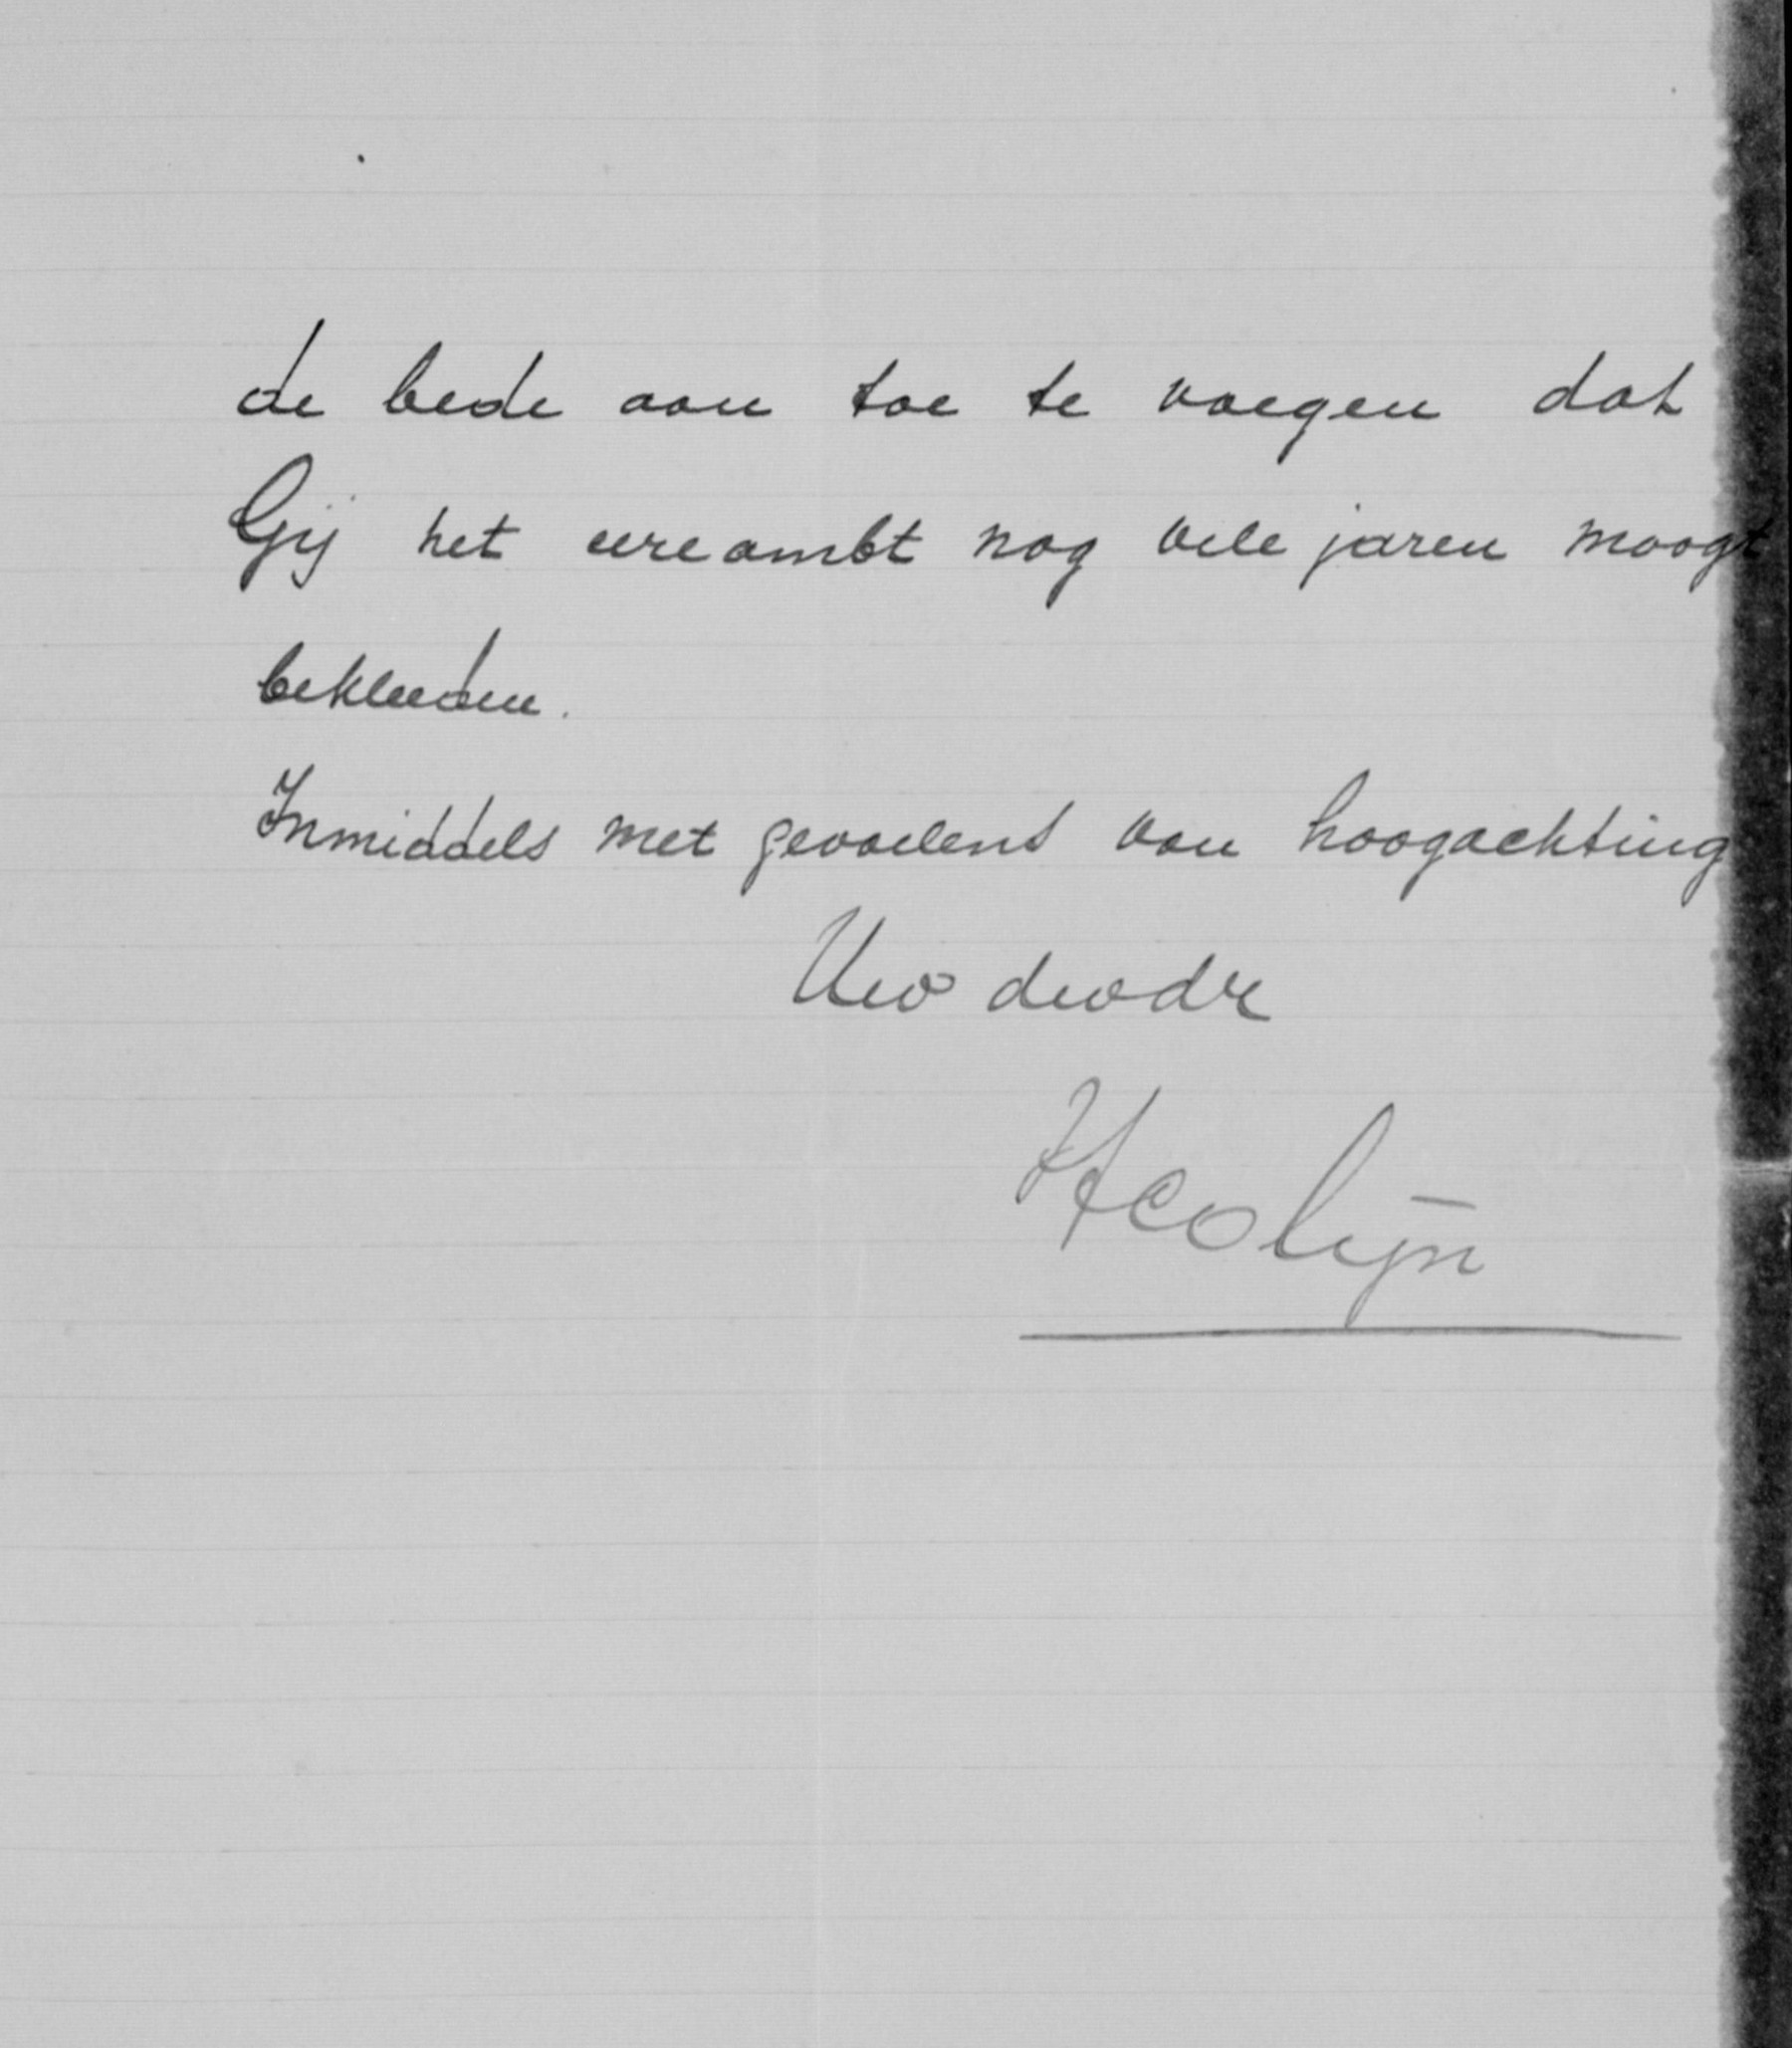 de bede aan toe te voegen dat
Gij het eereambt nog vele jaren moogt
bekleeden.
Inmiddels met gevoelens van hoogachting
Uw dwdr
HColijn